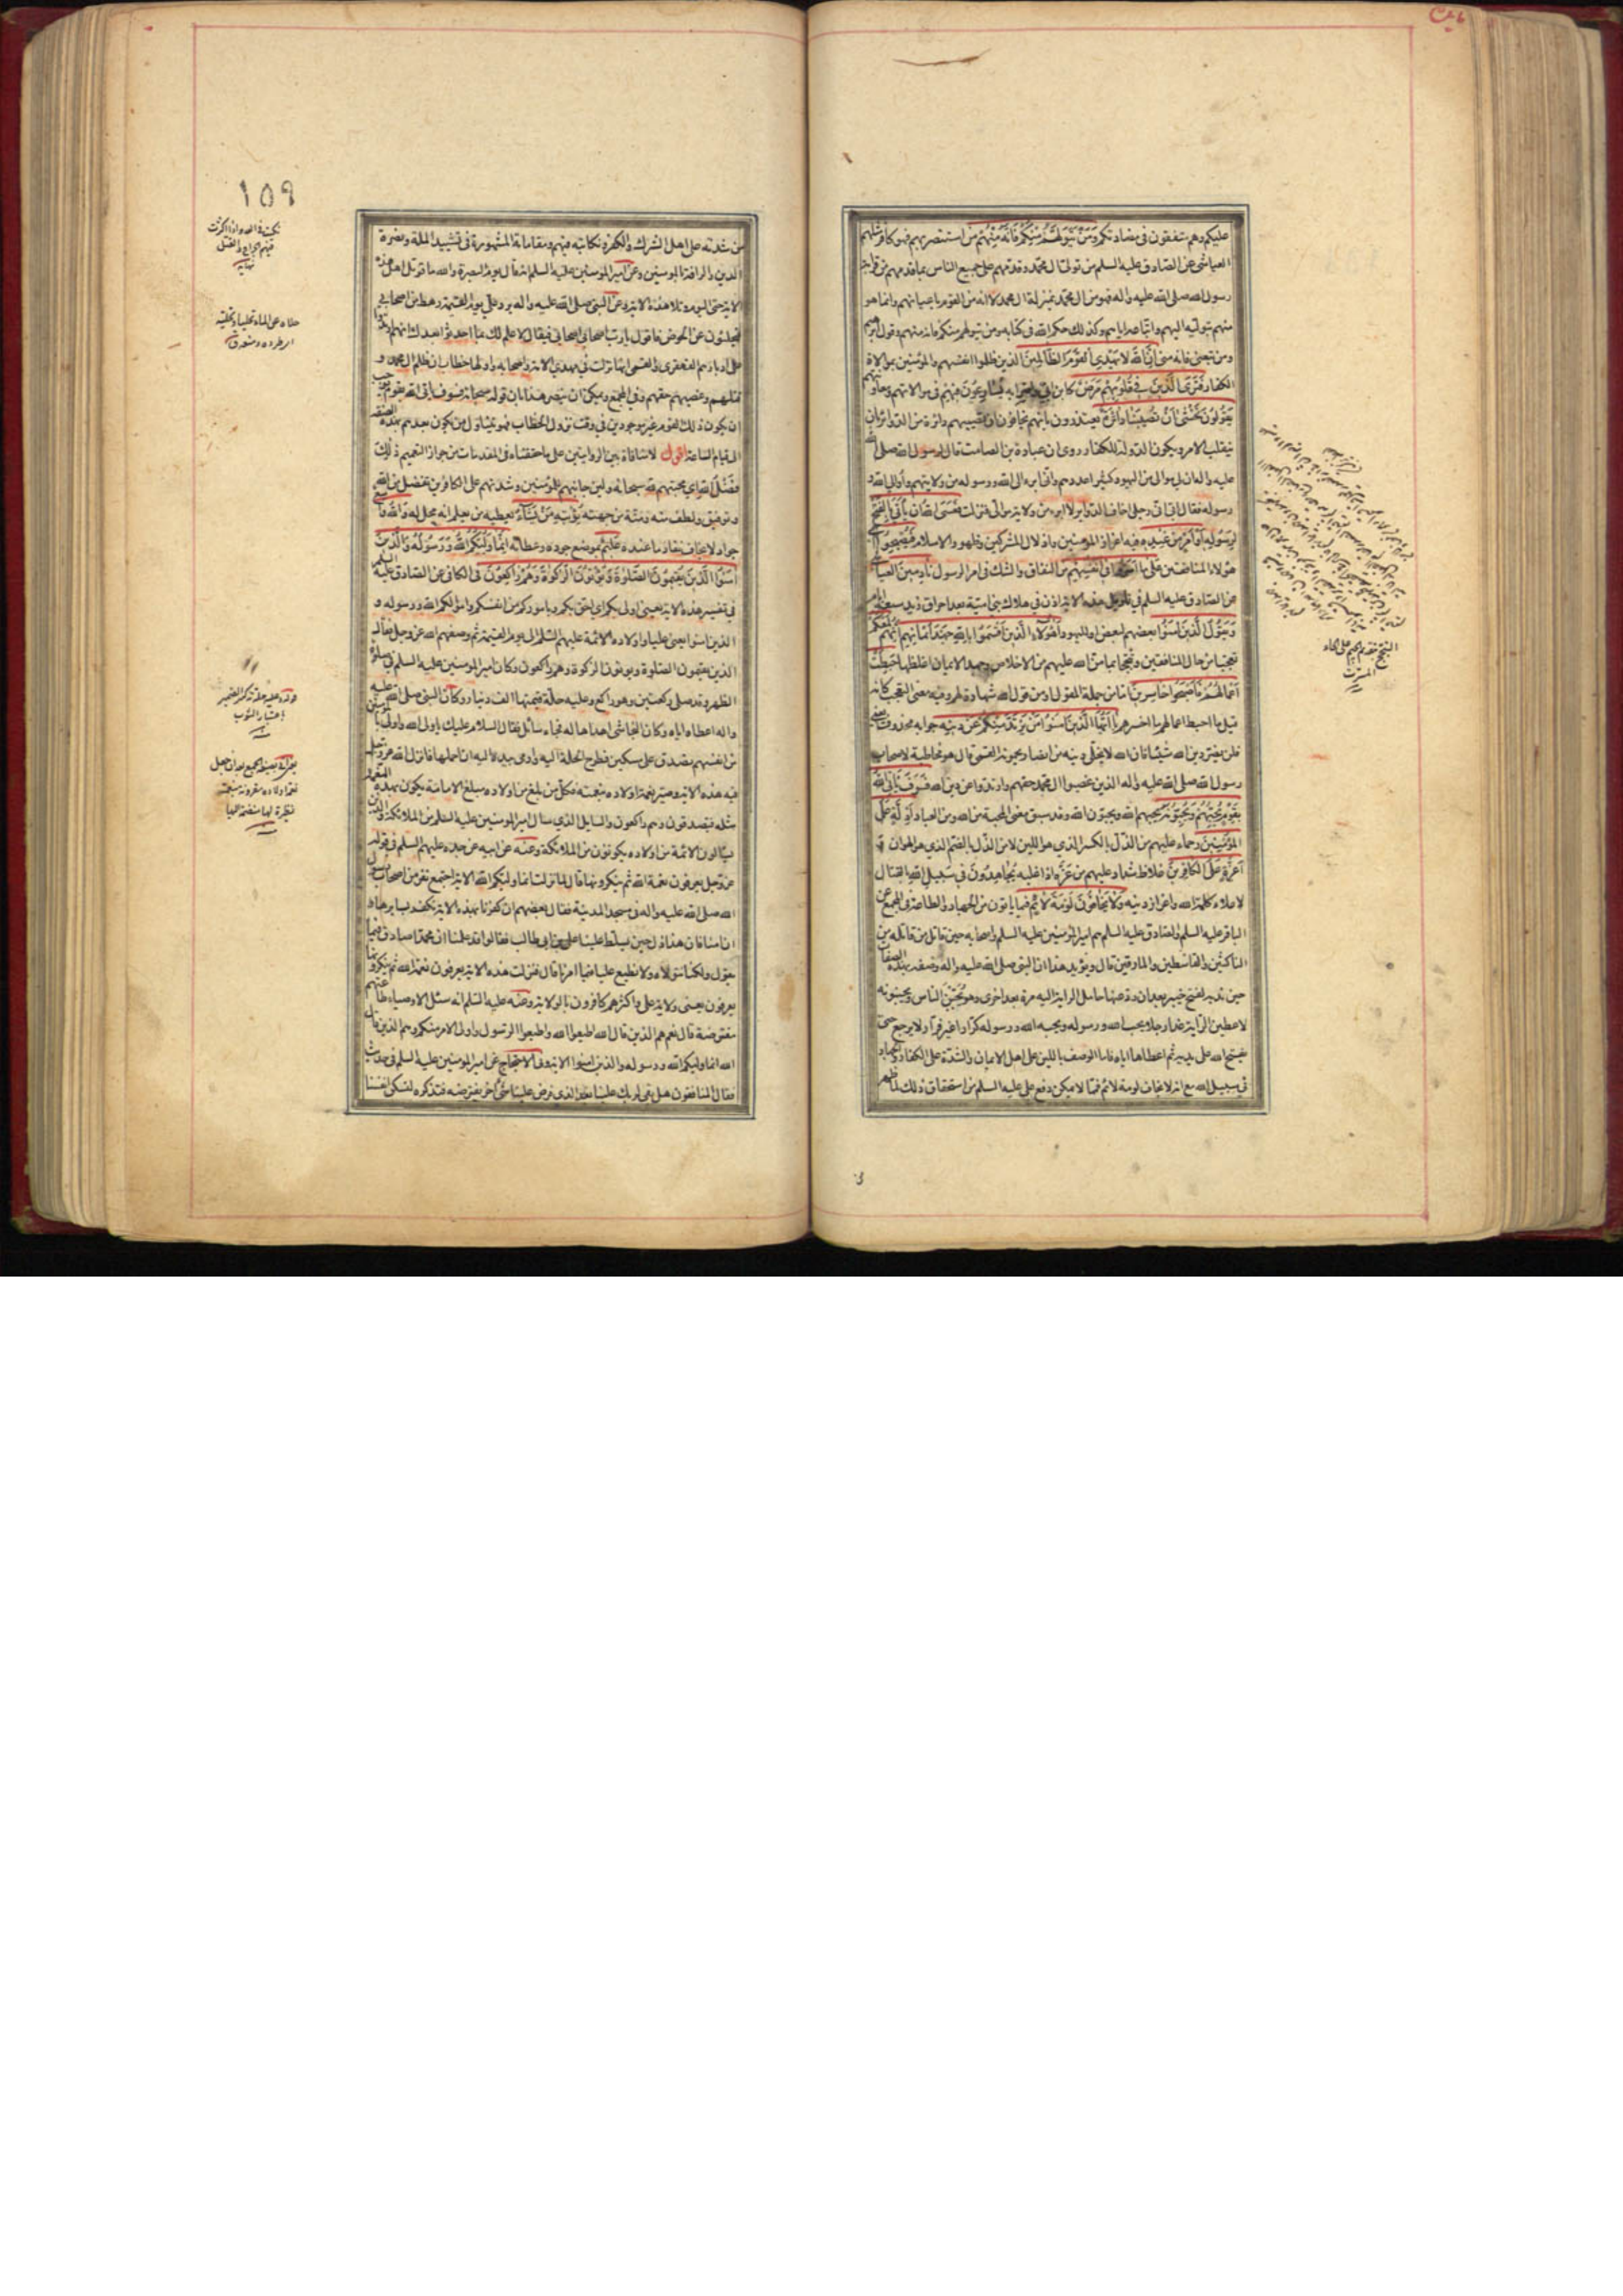 عليكم وهم متفقون في مضادتكم وَمَنْ يَتَوَلَّهُمْ مِنْكُمْ فَاِنَّهُ مِنْهُمْ من استنصر بهم فهو كافر مثلهم
العياشي عن الصادق عليه السلم من تولى ال محمد وقدمهم على جميع الناس بما قدمهم من قرابة
رسول الله صلى الله عليه واله فهو من ال محمد بمنزلة ال محمد لا انه من القوم باعيانهم وانما هو
منهم بتوليه اليهم واتباعه اياهم وكذلك حكم الله في كتابه ومن يتولهم منكم فانه منهم وقول ابرهيم
ومن تبعني فانه مني اِنَّ اللهَ لا يَهْدِي القَوْمَ الظَّالِمِينَ الذين ظلموا انفسهم والمؤمنين بموالاة
الكفار فَتَرَى الَّذِينَ فِي قُلُوبِهِمْ مَرَضٌ كابن ابي واضرابه يُسَارِعُونَ فِيهِمْ في موالاتهم ومعاونتهم
يَقُولُونَ نَخْشَى اَنْ تُصِيبَنَا دَائِرَةٌ يعتذرون بانهم يخافون ان تصيبهم دائرة من الدوائر بان
ينقلب الامر ويكون الدولة للكفار روى ان عبادة بن الصامت قال لرسول الله صلى الله
عليه واله ان لي موالي من اليهود كثيرا عددهم واني ابرء الى الله ورسوله من ولايتهم واوالي الله و
رسوله فقال ابن ابي اني رجل اخاف الدواير لا ابرء من ولاية موالي فنزلت فَعَسَى اللهُ اَنْ يَأْتِيَ بِالفَتْحِ
لرسوله اَوْ اَمْرٍ مِنْ عِنْدِهِ فيه اعزاز المؤمنين واذلال المشركين وظهور الاسلام فَيُصْبِحُوا اي
هؤلاء المنافقين عَلَى مَا اَسَرُّوا فِي اَنْفُسِهِمْ من النفاق والشك في امر الرسول نَادِمِينَ العياشي
عن الصادق عليه السلم في تاويل هذه الاية اذن في هلاك بني امية بعد احراق زيد سبعة ايام
وَيَقُولُ الَّذِينَ آمَنُوا بعضهم لبعض او لليهود اَهٰؤُلَاءِ الَّذِينَ اَقْسَمُوا بِاللهِ جَهْدَ اَيْمَانِهِمْ اِنَّهُمْ لَمَعَكُمْ
تعجبا من حال المنافقين وتبجحا بما من الله عليهم من الاخلاص وجهد الايمان اغلظها حَبِطَتْ
اَعْمَالُهُمْ فَاَصْبَحُوا خَاسِرِينَ اما من جملة المقول او من قول الله شهادة لهم وفيه معنى التعجب كانه
قيل ما احبط اعمالهم ما اخسرهم يَا اَيُّهَا الَّذِينَ آمَنُوا مَنْ يَرْتَدَّ مِنْكُمْ عَنْ دِينِهِ جوابه محذوف يعني
فلن يضر دين الله شيئا فان الله لا يخلي دينه من انصار يحمونه القمي قال هو مخاطبة لاصحاب
رسول الله صلى الله عليه واله الذين غصبوا ال محمد حقهم وارتدوا عن دين الله فَسَوْفَ يَأْتِي اللهُ
بِقَوْمٍ يُحِبُّهُمْ وَيُحِبُّونَهُ يحبهم الله ويحبون الله وقد سبق معنى المحبة من الله ومن العباد اَذِلَّةٍ عَلَى
المُؤْمِنِينَ رحماء عليهم من الذل بالكسر الذي هو اللين لا من الذل بالضم الذي هو الهوان
اَعِزَّةٍ عَلَى الكَافِرِينَ غلاظ شداد عليهم من عزه اذا غلبه يُجَاهِدُونَ فِي سَبِيلِ اللهِ بالقتال
لاعلاء كلمة الله واعزاز دينه وَلَا يَخَافُونَ لَوْمَةَ لَائِمٍ فيما ياتون من الجهاد والطاعة في المجمع عن
الباقر عليه السلم والصادق عليه السلم هم امير المؤمنين عليه السلم واصحابه حين قاتل من قاتله من
الناكثين والقاسطين والمارقين قال ويؤيد هذا ان النبي صلى الله عليه واله وصفه بهذه الصفات
حين ندبه لفتح خيبر بعد ان رد عنها حامل الراية اليه مرة بعد اخرى وهو يجبن الناس ويجبنونه
لاعطين الراية غدا رجلا يحب الله ورسوله ويحبه الله ورسوله كرارا غير فرار لا يرجع حتى
يفتح الله على يديه ثم اعطاها اياه فاما الوصف باللين على اهل الايمان والشدة على الكفار والجهاد
في سبيل الله مع انه لا يخاف لومة لائم فمما لا يمكن دفع علي عليه السلم من استحقاق ذلك لما ظهر
١٥٩
من شدته على اهل الشرك والكفر ونكايته فيهم ومقاماته المشهورة في تشييد الملة ونصرة
الدين والرافة بالمؤمنين وعن امير المؤمنين عليه السلم انه قال يوم البصرة والله ما قوتل اهل هذه
الاية حتى اليوم وتلا هذه الاية وعن النبي صلى الله عليه واله يرد علي يوم القيمة رهط من اصحابي
فيجلئون عن الحوض فاقول يا رب اصحابي اصحابي فيقال لا علم لك بما احدثوا بعدك انهم ارتدوا
على ادبارهم القهقرى والقمي انها نزلت في مهدي الامة واصحابه واولها خطاب لمن ظلم ال محمد و
قتلهم وغصبهم حقهم وفي المجمع ويمكن ان ينصر هذا بان قوله سبحانه فسوف ياتي الله بقوم يوجب
ان يكون ذلك القوم غير موجودين في وقت نزول الخطاب فهو يتناول من يكون بعدهم بهذه الصفة
الى قيام الساعة اقول لا منافاة بين الروايتين على ما حققناه في المقدمات من جواز التعميم ذٰلِكَ
فَضْلُ اللهِ اي محبتهم لله سبحانه ولين جانبهم للمؤمنين وشدتهم على الكافرين بفضل من الله
وتوفيق ولطف منه ومنة من جهته يُؤْتِيهِ مَنْ يَشَاءُ يعطيه من يعلم انه محل له وَاللهُ وَاسِعٌ
جواد لا يخاف نفاد ما عنده عَلِيمٌ بموضع جوده وعطائه اِنَّمَا وَلِيُّكُمُ اللهُ وَرَسُولُهُ وَالَّذِينَ
آمَنُوا الَّذِينَ يُقِيمُونَ الصَّلٰوةَ وَيُؤْتُونَ الزَّكٰوةَ وَهُمْ رَاكِعُونَ في الكافي عن الصادق عليه السلم
في تفسير هذه الاية يعني اولى بكم اي احق بكم وباموركم من انفسكم واموالكم الله ورسوله و
الذين امنوا يعني عليا واولاده الائمة عليهم السلم الى يوم القيمة ثم وصفهم الله عز وجل فقال
الذين يقيمون الصلوة ويؤتون الزكوة وهم راكعون وكان امير المؤمنين عليه السلم في صلوة
الظهر وقد صلى ركعتين وهو راكع وعليه حلة قيمتها الف دينار وكان النبي صلى الله عليه
واله اعطاه اياه وكان النجاشي اهداها له فجاء سائل فقال السلام عليك يا ولي الله واولى بالمؤمنين
من انفسهم تصدق على مسكين فطرح الحلة اليه واومى بيده اليه ان احملها فانزل الله عز وجل
فيه هذه الاية وصير نعمة اولاده بنعمته فكل من بلغ من اولاده مبلغ الامامة يكون بهذه النعمة
مثله فيتصدقون وهم راكعون والسايل الذي سال امير المؤمنين عليه السلم من الملائكة والذين
يسالون الائمة من اولاده يكونون من الملائكة وعنه عن ابيه عن جده عليهم السلم في قوله
عز وجل يعرفون نعمة الله ثم ينكرونها قال لما نزلت انما وليكم الله الاية اجتمع نفر من اصحاب رسول
الله صلى الله عليه واله في مسجد المدينة فقال بعضهم ان كفرنا بهذه الاية نكفر بسايرها و
ان امنا فان هذا ذل حين يسلط علينا علي بن ابي طالب فقالوا قد علمنا ان محمدا صادق فيما
يقول ولكنا نتولاه ولا نطيع عليا فيما امرنا قال فنزلت هذه الاية يعرفون نعمة الله ثم ينكرونها
يعرفون يعني ولاية علي واكثرهم كافرون بالولاية وعنه عليه السلم انه سئل الاوصياء طاعتهم
مفترضة قال نعم هم الذين قال الله اطيعوا الله واطيعوا الرسول واولى الامر منكم وهم الذين قال
الله انما وليكم الله ورسوله والذين امنوا الاية وفي الاحتجاج عن امير المؤمنين عليه السلم في حديث
فقال المنافقون هل بقي لربك علينا بعد الذي فرض علينا شئ اخر يفترضه فتذكره لتسكن انفسنا